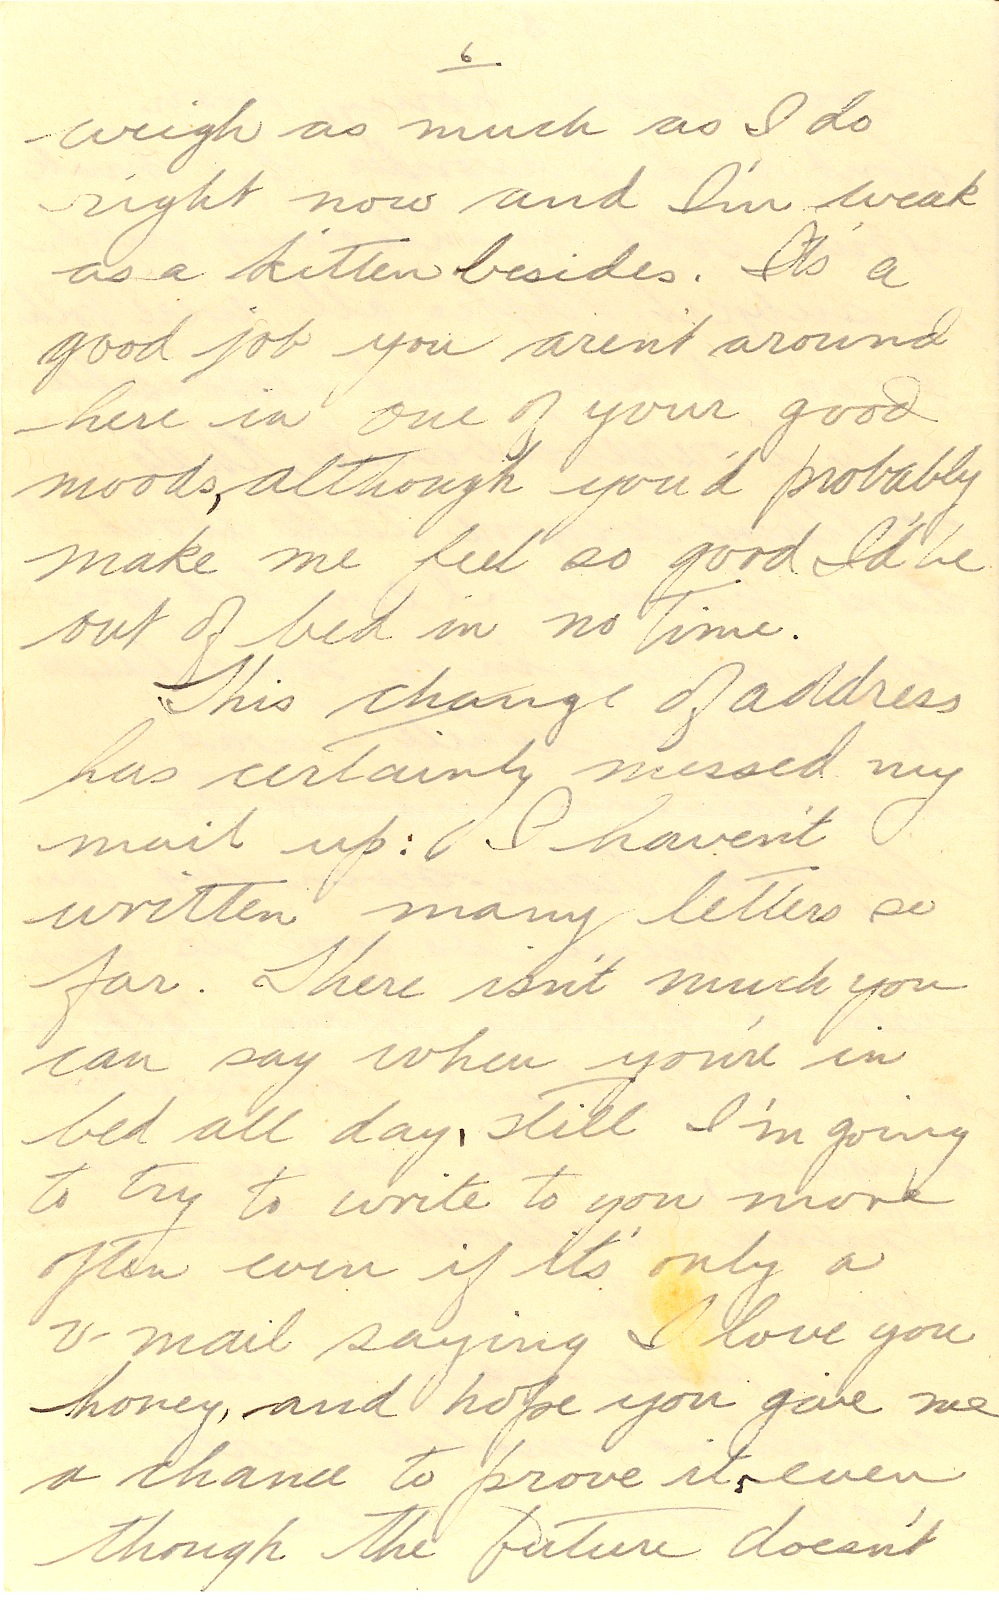 6.
weigh as much as I do
right now and I'm weak
as a kitten besides. It's a
good job you aren't around
here in one of your good
moods, although you'd probably
make me feel so good I'd be
out of bed in no time.
This change of address
has certainly messed my
mail up: I haven't
written many letters so
far. There isn't much you
can say when you're in
bed all day, still I'm going
to try to write to you more
often even if it's only a
v-mail saying I love you
honey, and hope you give me
a chance to prove it, even
though the future doesn't